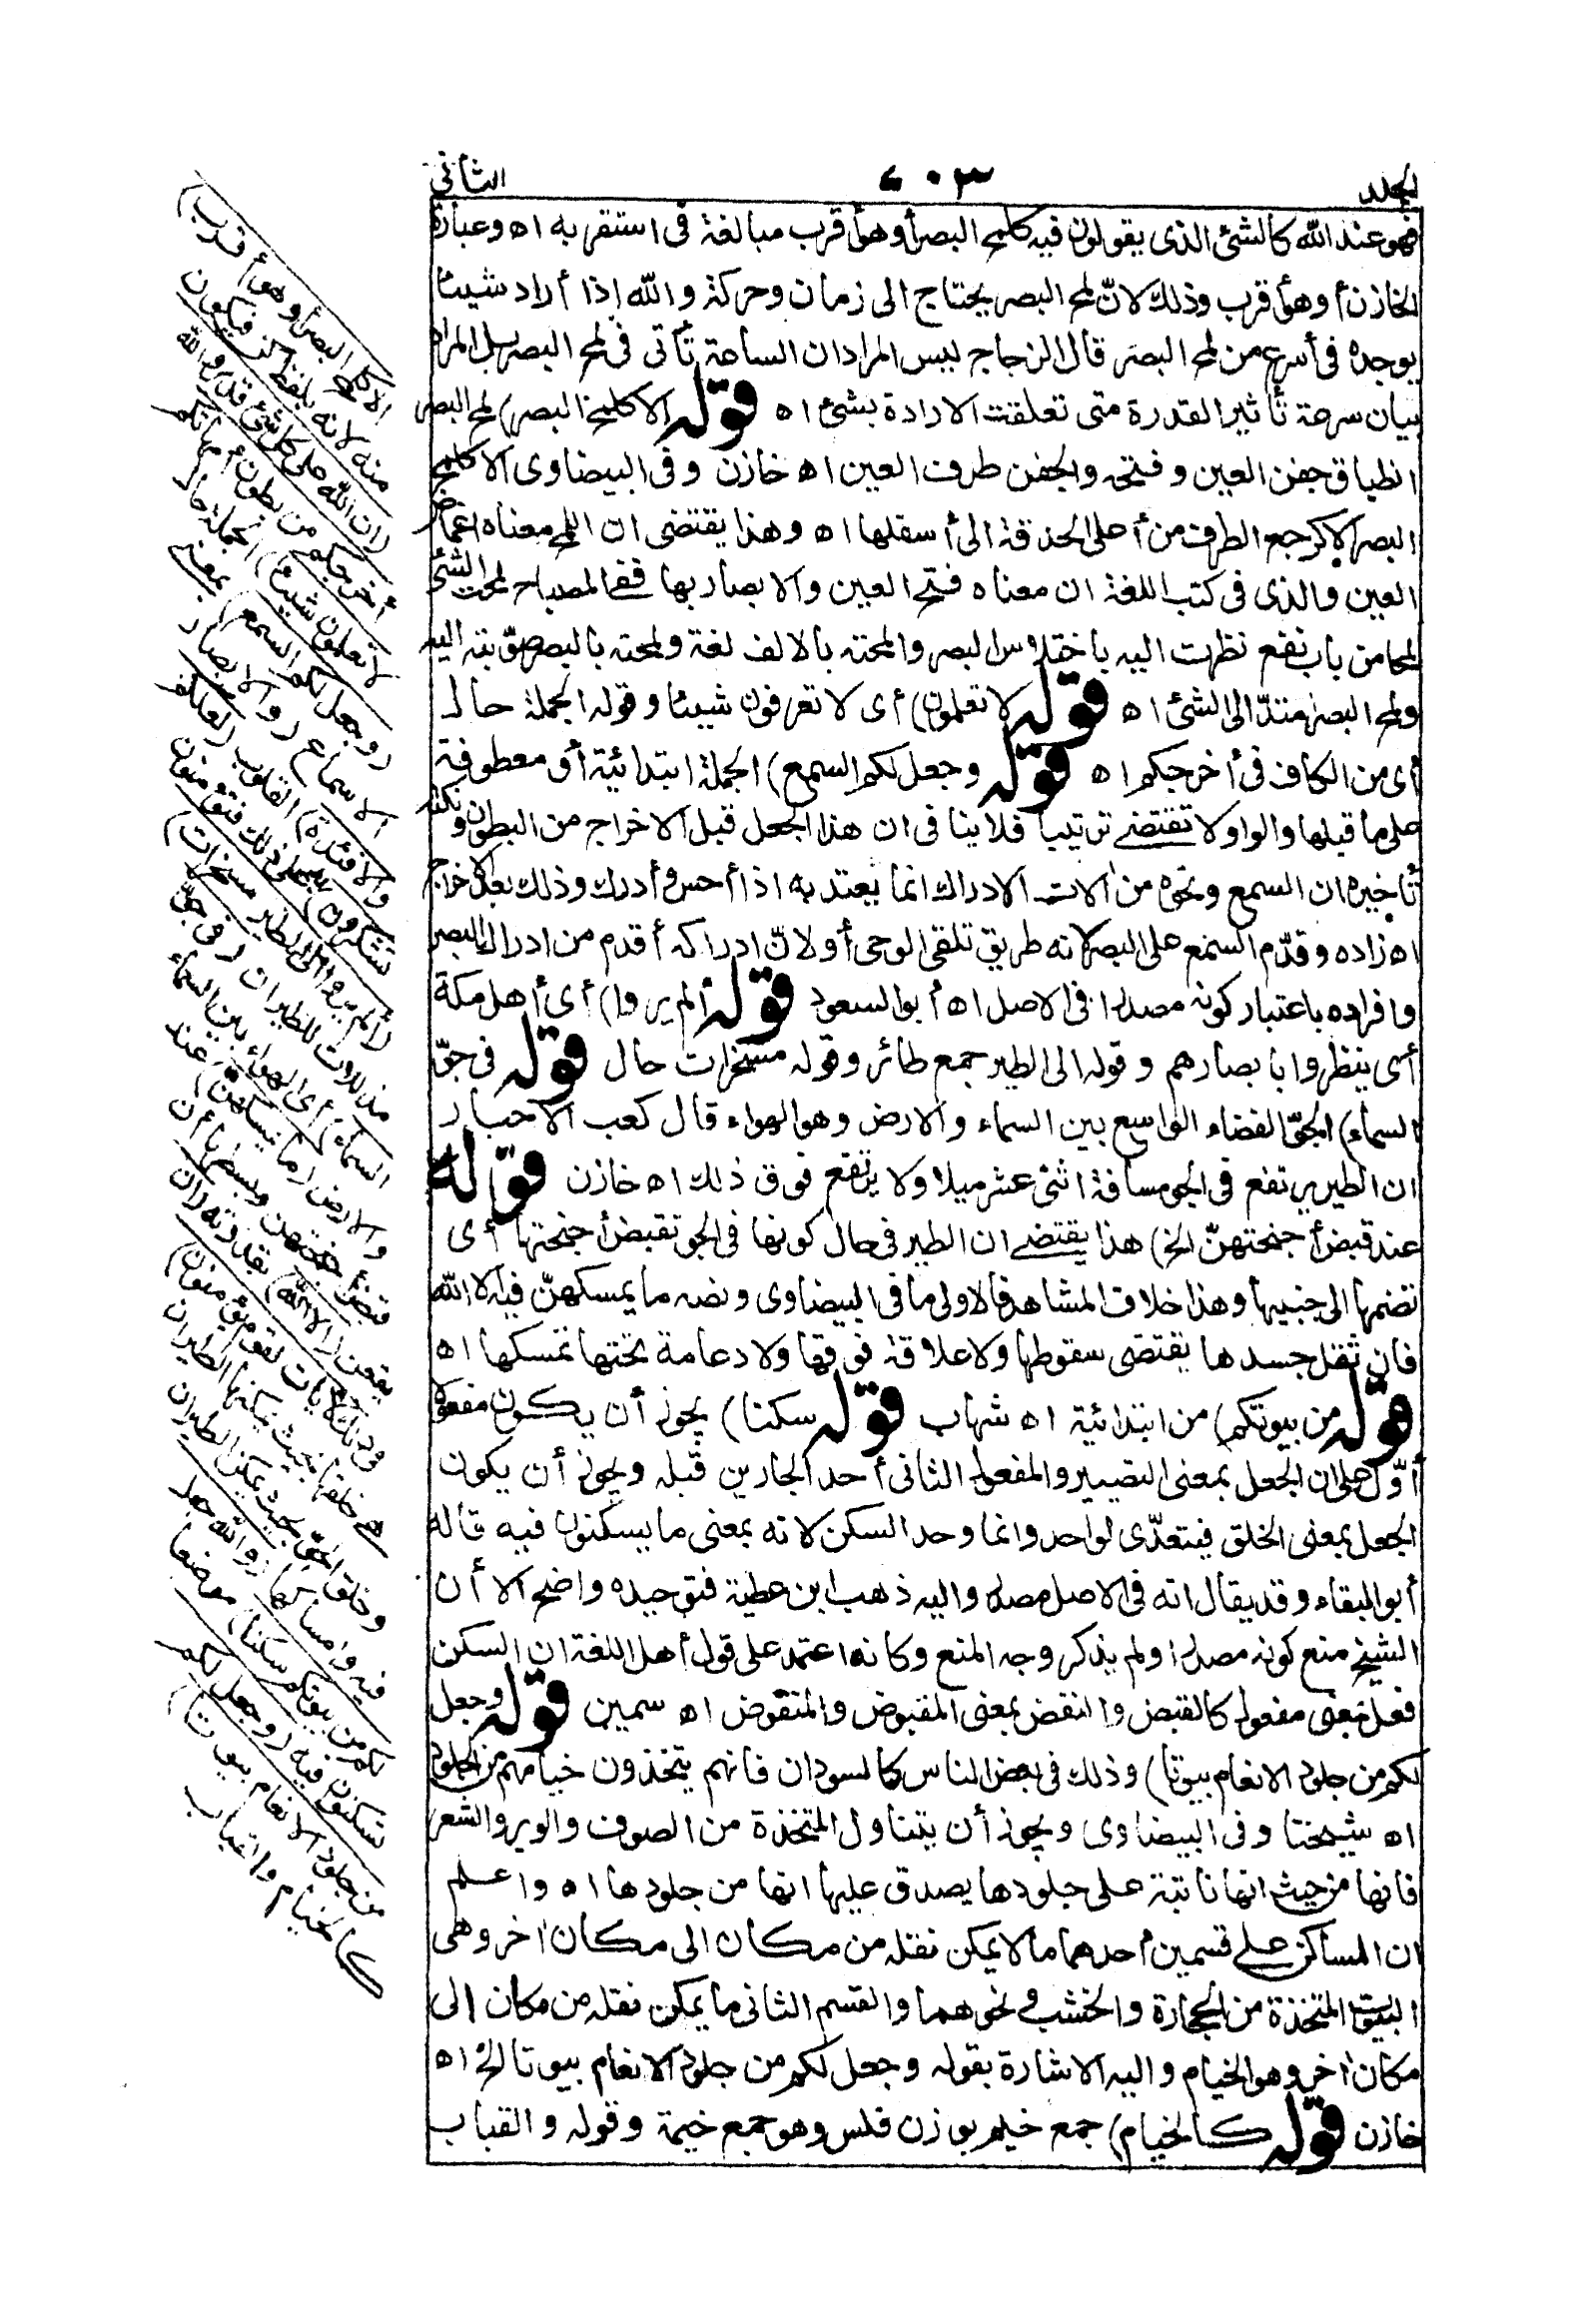 الجلد ٦٠٣ الثاني
فهو عند الله كالشئ الذى يقولون فيه كلمح البصر أو هو أقرب مبالغة فى استقربه اه وعبارة
الخازن أو هو أقرب وذلك لانّ لمح البصر يحتاج الى زمان وحركة والله إذا أراد شيئا
يوجده فى أسرع من لمح البصر قال الزجاج ليس المراد ان الساعة تأتى فى لمح البصر بل المراد
بيان سرعة تأثير القدرة متى تعلقت الارادة بشئ اه قوله الا كلمح البصر) لمح البصر
انطباق جفن العين وفتحه والجفن طرف العين اه خازن وفى البيضاوى الا كلمح
البصر الا كرجع الطرف من أعلى الحدقة الى أسفلها اه وهذا يقتضى ان اللمح معناه اغماض
العين والذى فى كتب اللغة ان معناه فتح العين والابصار بها ففى المصباح لمحت الشئ
لمحا من باب نفع نظرت اليه باختلاس البصر وألمحته بالالف لغة ولمحته بالبصر صوّبته اليه
ولمح البصر امتدّ الى الشئ اه قوله لا تعلمون) أى لا تعرفون شيئا وقوله الجملة حال
أى من الكاف فى أخرجكم اه قوله وجعل لكم السمع) الجملة ابتدائية أو معطوفة
على ما قبلها والواو لا تقتضى ترتيبا فلا ينافى ان هذا الجعل قبل الاخراج من البطون ونكتة
تأخيره ان السمع ونحوه من آلات الادراك انما يعتد به اذا أحس وأدرك وذلك بعد الاخراج
اه زاده وقدّم السمع على البصر لانه طريق تلقى الوحى أو لانّ ادراكه أقدم من ادراك البصر
وافراده باعتبار كونه مصدرا فى الاصل اه أبو السعود قوله ألم يروا) أى أهل مكة
أى ينظروا بأبصارهم وقوله الى الطير جمع طائر وقوله مسخرات حال قوله فى جوّ
السماء) الجوّ الفضاء الواسع بين السماء والارض وهو الهواء قال كعب الاحبار
ان الطير يرتفع فى الجو مسافة اثنى عشر ميلا ولا يرتفع فوق ذلك اه خازن قوله
عند قبض أجنحتهنّ الخ) هذا يقتضى ان الطير فى حال كونها فى الجو تقبض أجنحتها أى
تضمها الى جنبيها وهذا خلاف المشاهد فالاولى ما فى البيضاوى ونصه ما يمسكهنّ فيه الا الله
فان ثقل جسدها يقتضى سقوطها ولا علاقة فوقها ولا دعامة تحتها تمسكها اه
قوله من بيوتكم) من ابتدائية اه شهاب قوله سكنا) يجوز أن يكون مفعولا
أوّل على ان الجعل بمعنى التصيير والمفعول الثانى أحد الجارين قبله ويجوز أن يكون
الجعل بمعنى الخلق فيتعدّى لواحد وانما وحد السكن لانه بمعنى ما يسكنون فيه قاله
أبو البقاء وقد يقال انه فى الاصل مصدر واليه ذهب ابن عطية فتوحيده واضح الا أن
الشيخ منع كونه مصدرا ولم يذكر وجه المنع وكانه اعتمد على قول أهل اللغة ان السكن
فعل بمعنى مفعول كالقبض والنقض بمعنى المقبوض والمنقوض اه سمين قوله وجعل
لكم من جلود الانعام بيوتا) وذلك فى بعض الناس كالسودان فانهم يتخذون خيامهم من الجلود
اه شيخنا وفى البيضاوى ويجوز أن يتناول المتخذة من الصوف والوبر والشعر
فانها من حيث انها نابتة على جلودها يصدق عليها انها من جلودها اه واعلم
ان المساكن على قسمين أحدهما ما لا يمكن نقله من مكان الى مكان آخر وهى
البيوت المتخذة من الحجارة والخشب ونحوهما والقسم الثانى ما يمكن نقله من مكان الى
مكان آخر وهو الخيام واليه الاشارة بقوله وجعل لكم من جلود الانعام بيوتا الخ اه
خازن قوله كالخيام) جمع خيم بوزن فلس وهو جمع خيمة وقوله والقباب
الا كلمح البصر أو هو أقرب)
منه لانه بلفظ كن فيكون
(ان الله على كل شئ قدير والله
أخرجكم من بطون أمهاتكم
لا تعلمون شيئا) الجملة حال
(وجعل لكم السمع) بمعنى
الاسماع (والابصار
والافئدة) القلوب (لعلكم
تشكرون)ه على ذلك فتؤمنون
(ألم يروا الى الطير مسخرات)
مذللات للطيران (فى جوّ
السماء) أى الهواء بين السماء
والارض (ما يمسكهنّ) عند
قبض أجنحتهن وبسطها أن
يقعن (الا الله) بقدرته (ان
فى ذلك لآيات لقوم يؤمنون)
هى خلقها بحيث يمكنها الطيران
وخلق الجوّ بحيث يمكن الطيران
فيه وامساكها (والله جعل
لكم من بيوتكم سكنا) موضعا
تسكنون فيه (وجعل لكم
من جلود الانعام بيوتا)
كالخيام والقباب